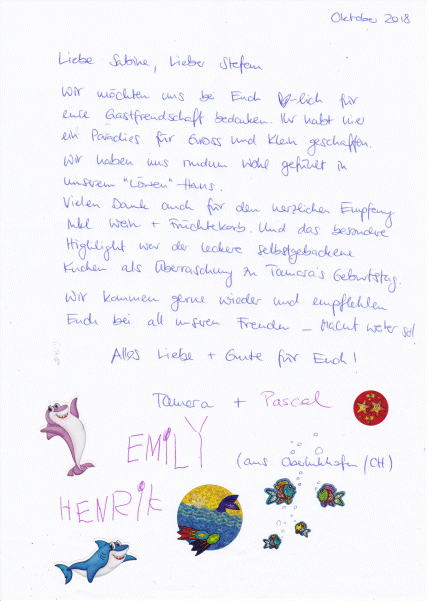 Oktober 2018
Liebe Sabine, Lieber Stefan
Wir möchten uns bei Euch ♥-lich für
eure Gastfreundschaft bedanken. Ihr habt hier
ein Paradies für Gross und Klein geschaffen.
Wir haben uns rundum wohl gefühlt in
unserem "Löwen"-Haus.
Vielen Dank auch für den herzlichen Empfang
inkl Wein + Früchtekorb. Und das besondere
Highlight war der leckere selbstgebackene
Kuchen als Überraschung zu Tamara's Geburtstag.
Wir kommen gerne wieder und empfehlen
Euch bei all unseren Freunden – Macht weiter so!
Alles Liebe + Gute für Euch!
Tamara + Pascal
EMILY
(aus /CH)
HENRIK